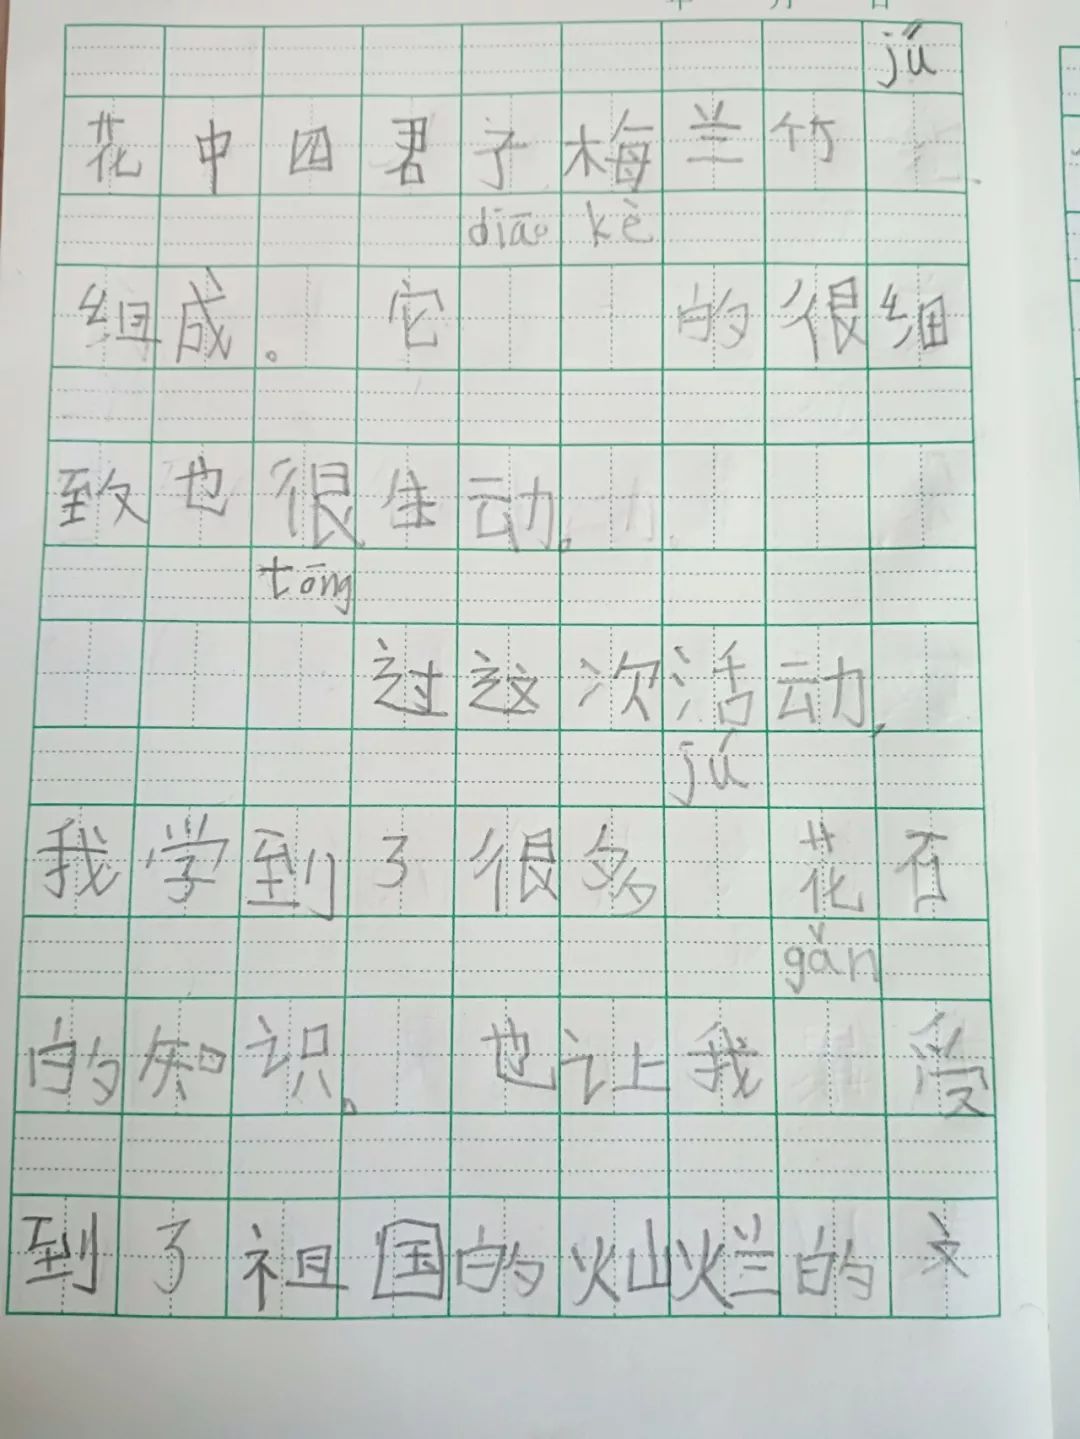 jú
花中四君子梅兰竹
diāo kè
组成。它 的很细
致也很生动。
tōng
过这次活动,
jú
我学到了很多 花石
gǎn
的知识。也让我 受
到了祖国的灿烂的文